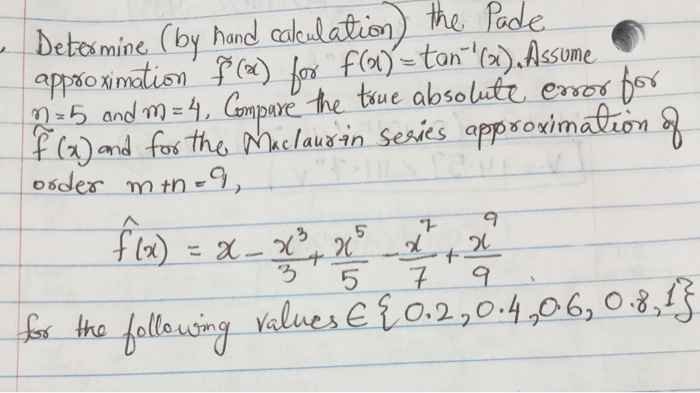 Determine (by hand calculation) the Pade
approximation f̃(x) for f(x) = tan⁻¹(x). Assume
n=5 and m=4, Compare the true absolute error for
f̃(x) and for the Maclaurin series approximation of
order m+n=9,
f̂(x) = x - x³/3 + x⁵/5 - x⁷/7 + x⁹/9.
for the following values ∈ {0.2, 0.4, 0.6, 0.8, 1}